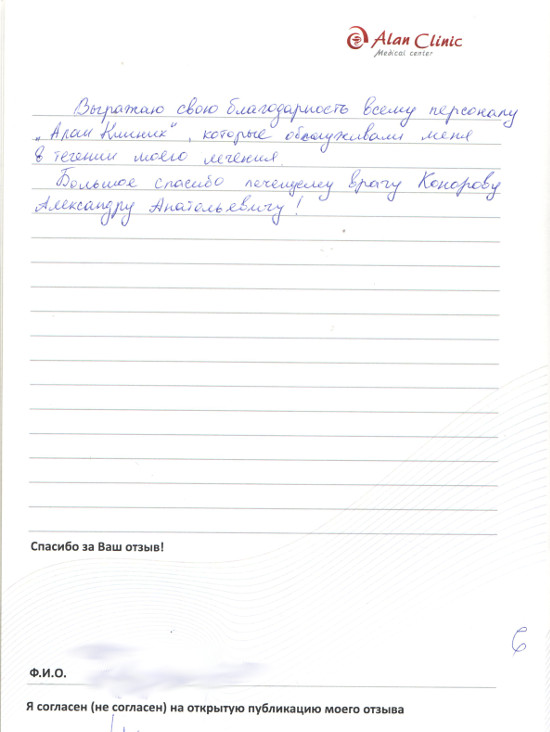 Alan Clinic
Medical center
Выражаю свою благодарность всему персоналу
„Алан Клиник“, которые обслуживали меня
в течении моего лечения.
Большое спасибо лечащему врачу Конорову
Александру Анатольевичу!
Спасибо за Ваш отзыв!
6
Ф.И.О.
Я согласен (не согласен) на открытую публикацию моего отзыва